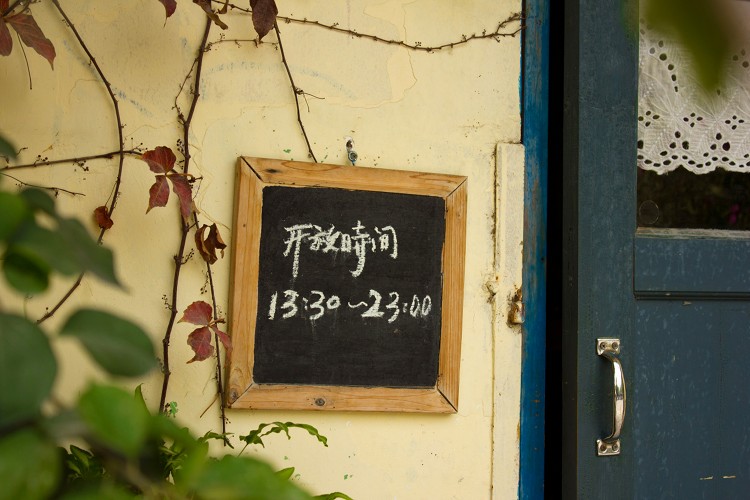 开放時间
13:30~23:00